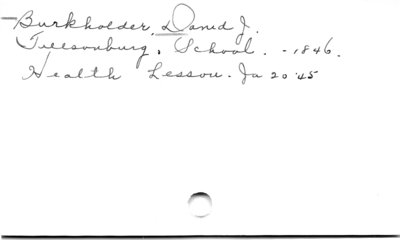 Burkholder, David J.
Tillsonburg, School. - 1846.
Health Lesson. Ja 20 '45